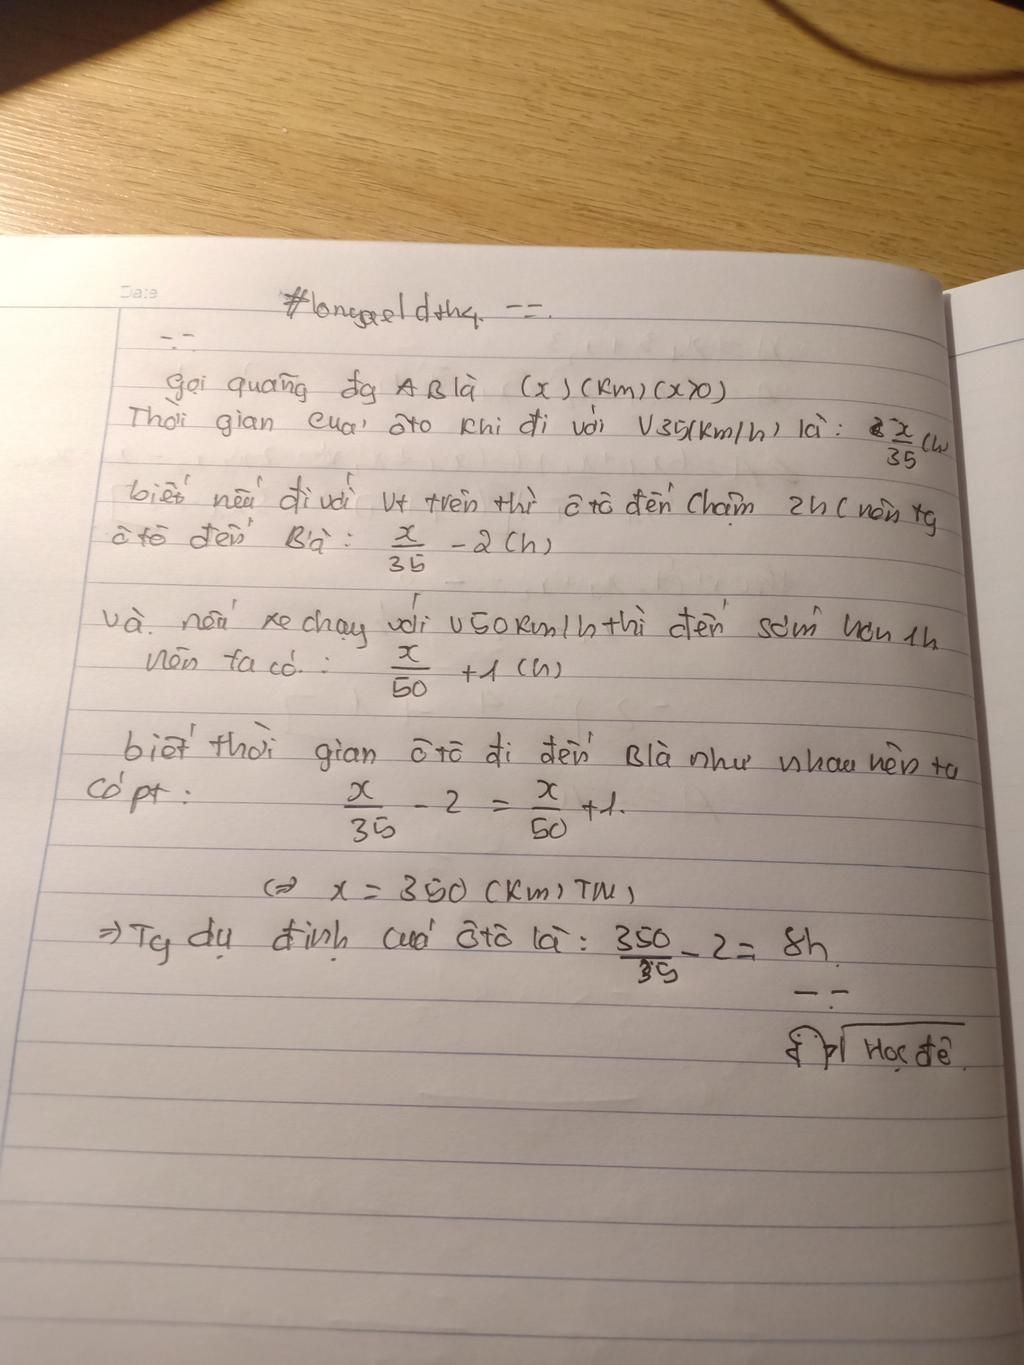 Date
gọi quãng đg AB là (x) (km) (x>0)
Thời gian của ôto khi đi với V35(km/h) là: x/35 (h)
biết nếu đi với vt trên thì ô tô đến chậm 2h (nên tg
ô tô đến B là: x/35 - 2 (h)
và nếu xe chạy với v50km/h thì đến sớm hơn 1h
nên ta có: x/50 + 1 (h)
biết thời gian ô tô đi đến B là như nhau nên ta
có pt: x/35 - 2 = x/50 + 1.
<=> x = 350 (km, TM)
=> Tg dự định của ôtô là: 350/35 - 2 = 8h.
Học đê.